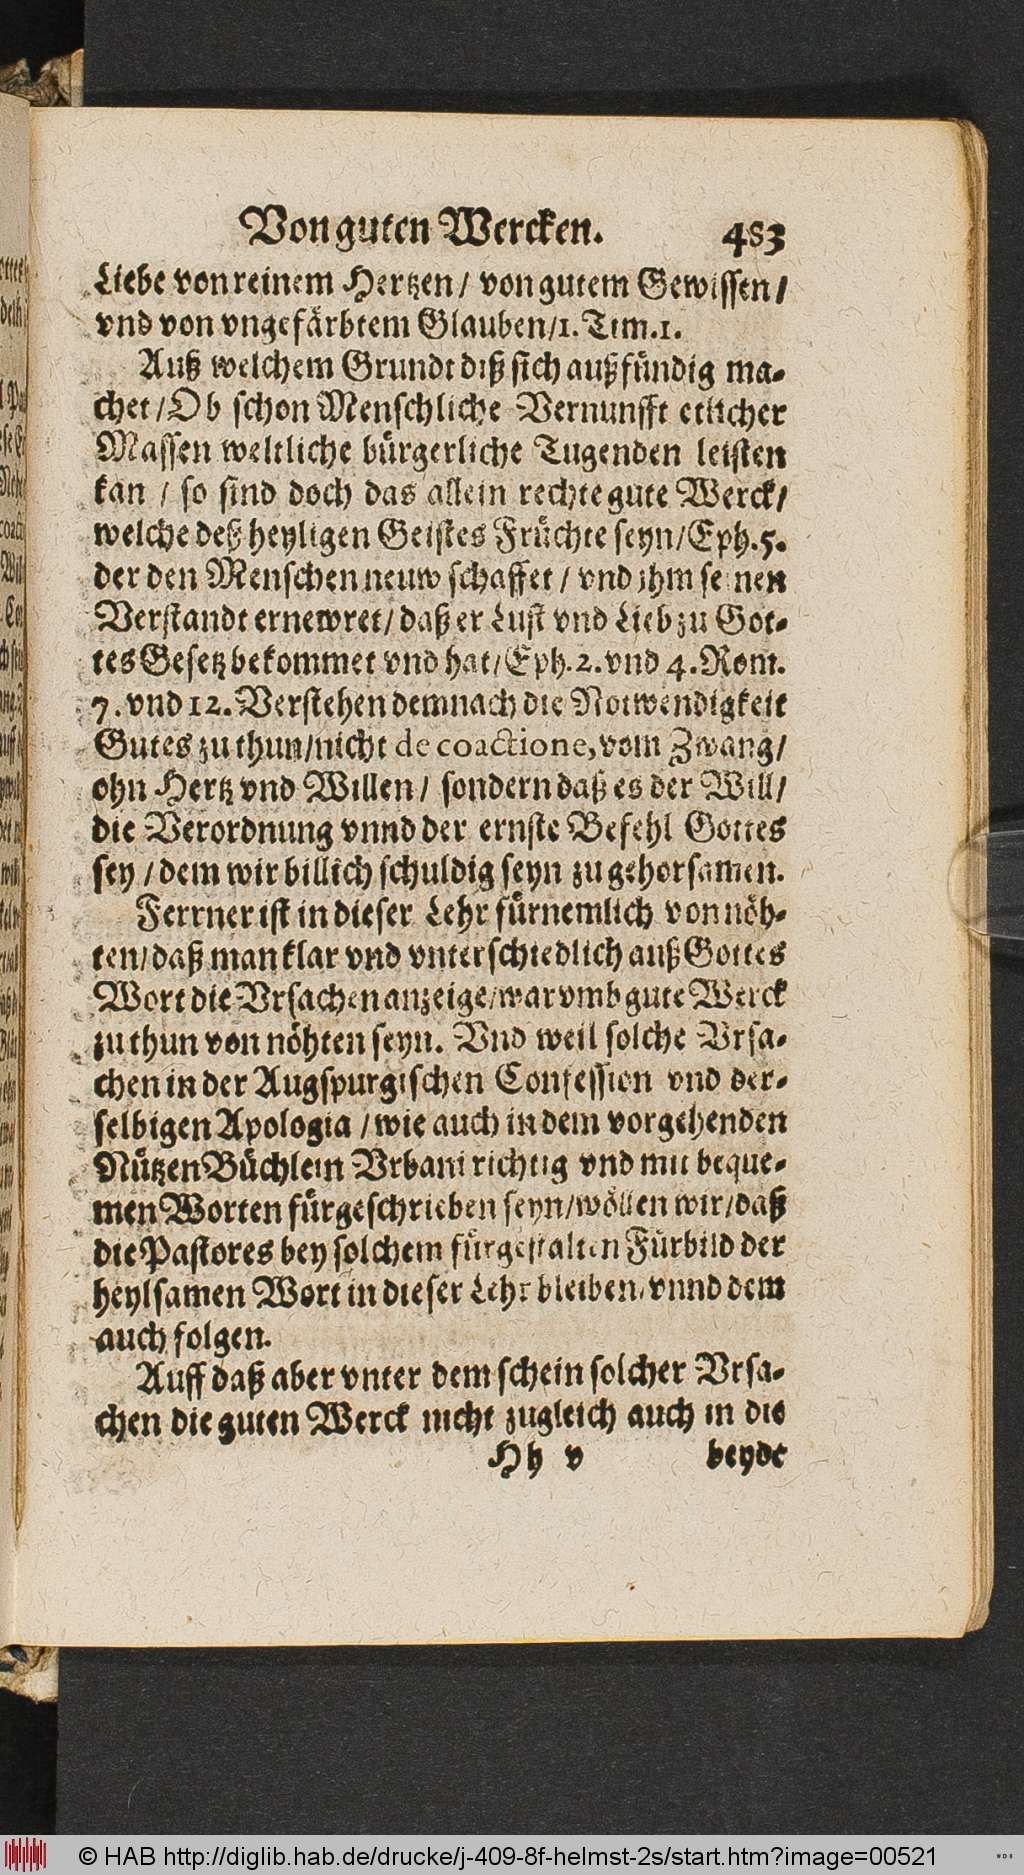 Von guten Wercken. 483
Liebe von reinem Hertzen / von gutem Gewissen /
vnd von vngefärbtem Glauben / 1. Tim. 1.
Auß welchem Grundt diß sich außfündig ma-
chet / Ob schon Menschliche Vernunfft etlicher
Massen weltliche bürgerliche Tugenden leisten
kan / so sind doch das allein rechte gute Werck /
welche deß heyligen Geistes Früchte seyn / Eph. 5.
der den Menschen neuw schaffet / vnd jhm seinen
Verstandt ernewret / daß er Lust vnd Lieb zu Got-
tes Gesetz bekommet vnd hat / Eph. 2. vnd 4. Rom.
7. vnd 12. Verstehen demnach die Notwendigkeit
Gutes zu thun / nicht de coactione, vom Zwang /
ohn Hertz vnd Willen / sondern daß es der Will /
die Verordnung vnnd der ernste Befehl Gottes
sey / dem wir billich schuldig seyn zu gehorsamen.
Ferrner ist in dieser Lehr fürnemlich von nöh-
ten / daß man klar vnd vnterschiedlich auß Gottes
Wort die Vrsachen anzeige / warvmb gute Werck
zu thun von nöhten seyn. Vnd weil solche Vrsa-
chen in der Augspurgischen Confession vnd der-
selbigen Apologia / wie auch in dem vorgehenden
Nützen Büchlein Vrbani richtig vnd mit beque-
men Worten fürgeschrieben seyn / wöllen wir / daß
die Pastores bey solchem fürgestalten Fürbild der
heylsamen Wort in dieser Lehr bleiben / vnnd dem
auch folgen.
Auff daß aber vnter dem schein solcher Vrsa-
chen die guten Werck nicht zugleich auch in die
Hh v beyde
© HAB http://diglib.hab.de/drucke/j-409-8f-helmst-2s/start.htm?image=00521